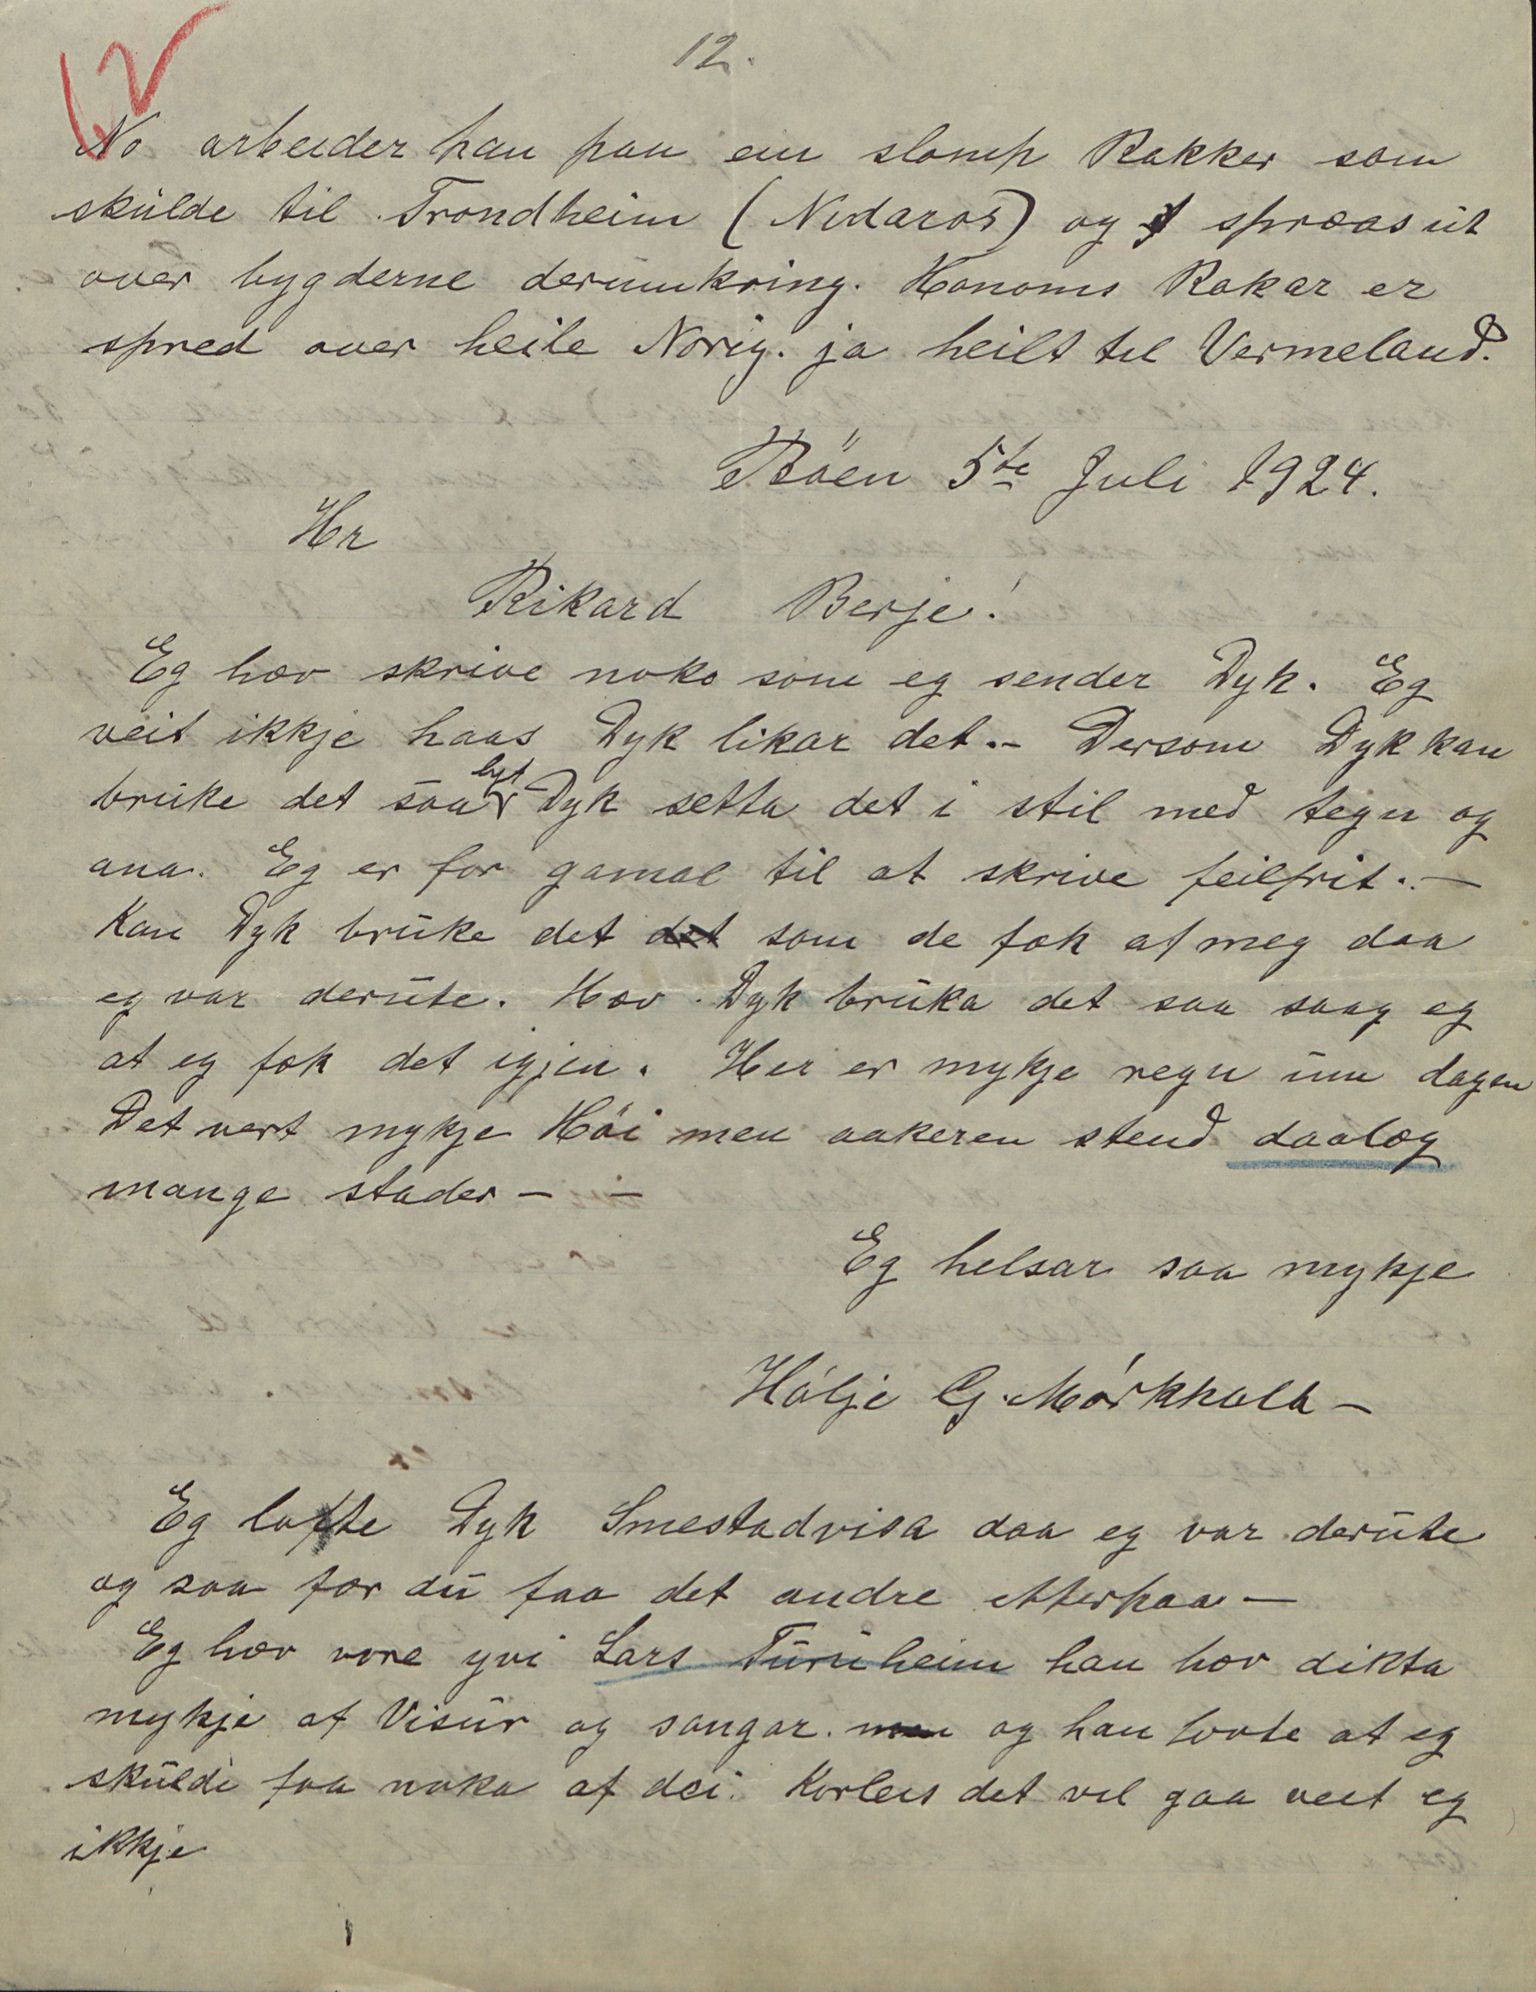 12.
No arbeider han paa ein slomp Rokker som
skulde til Trondheim (Nidaros) og spreas ut
over bygderne derumkring. Honoms Rokar er
spred over heile Norig. ja heilt til Vermeland.
Böen 5te Juli 1924.
Hr
Rikard Berje!
Eg hæv skrive noko som eg sender Dyk. Eg
veit ikkje haas Dyk likar det.- Dersom Dyk kan
bruke det saa byt Dyk setta det i stil med tegn og
ana. Eg er for gamal til at skrive feilfrit. —
Kan Dyk bruke det det som de fok af meg daa
eg var derute. Hæv Dyk bruka det saa saag eg
at eg fæk det igjen. Her er mykje regn um dagen
Det vert mykje Höi men aakeren stend daaleg
mange stader — —
Eg helsar saa mykje
Hölje G. Mörkhola —
Eg lofte Dyk Smestadvisa daa eg var derute
og saa fær du faa det andre etterpaa —
Eg hæv vore yvi Lars Turnheim han hæv dikta
mykje af Visur og songar. men og han lovte at eg
skulde faa noka af dei. Korleis det vil gaa veit eg
ikkje